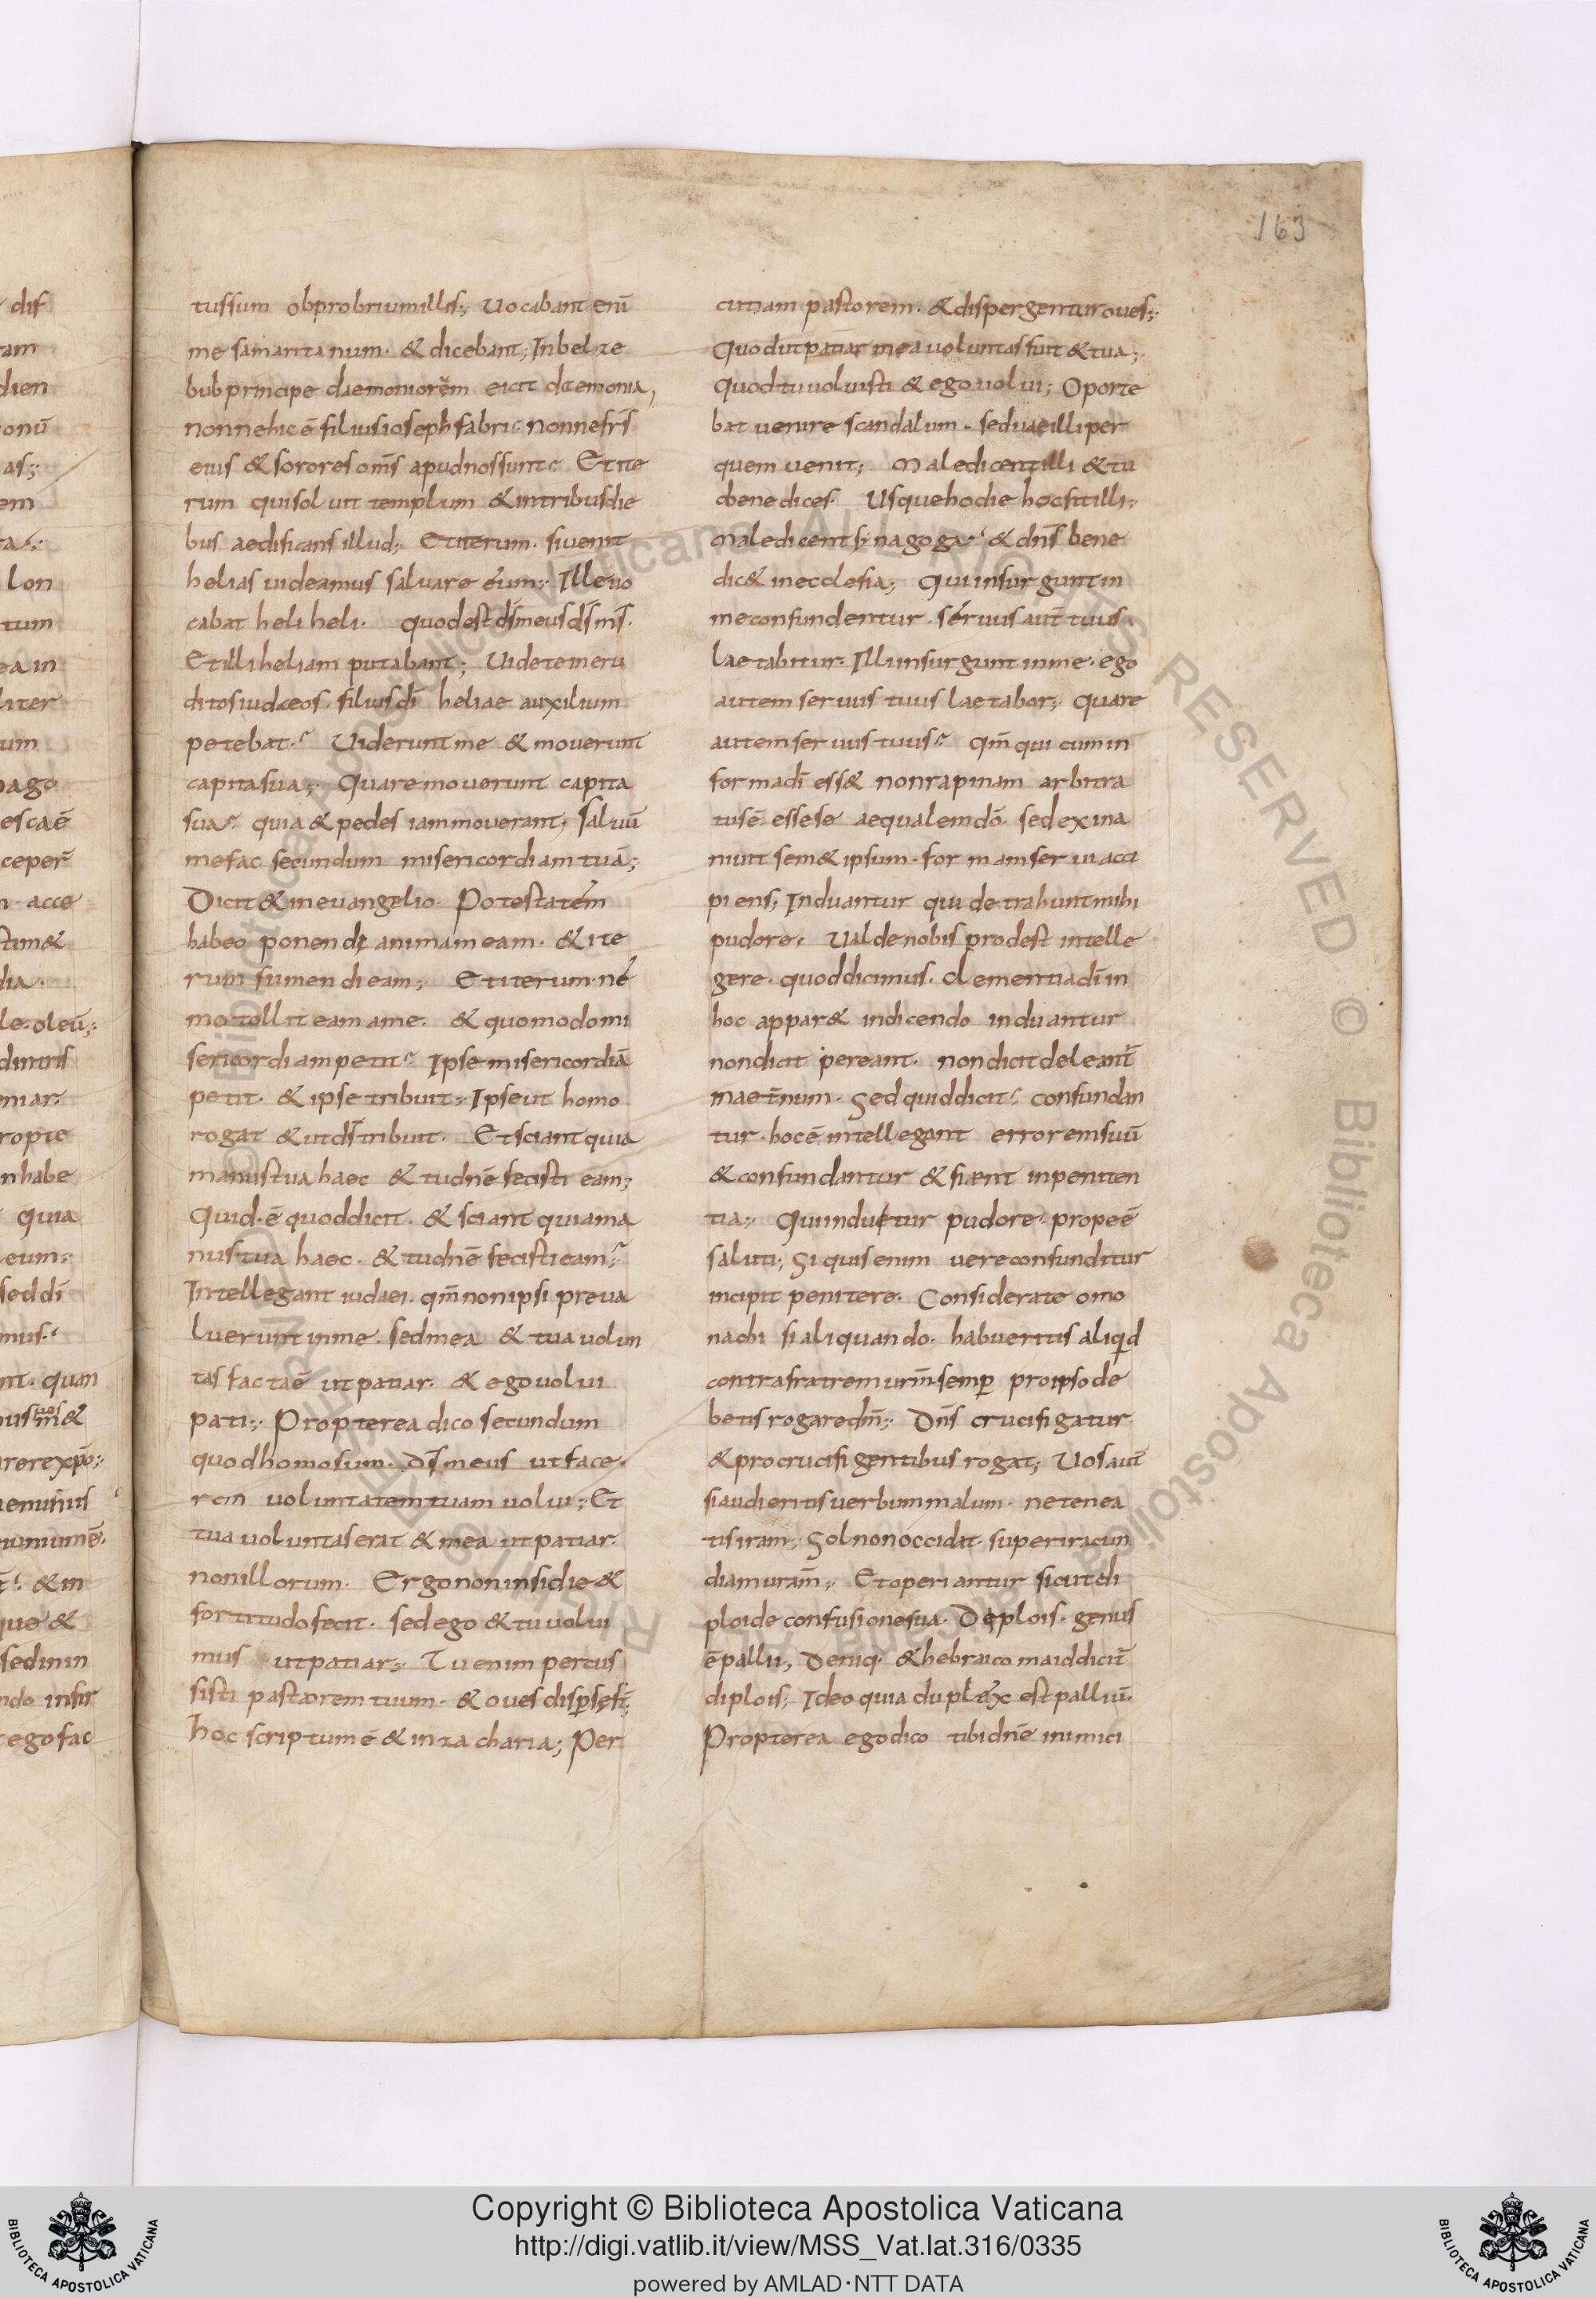 163
tussum obprobriumillis:, Uocabant enī
me samarita num. & dicebant; Inbelze
bub principe daemoniorum eicit daemonia,
nonnehicē filiusioseph fabri: nonnefr̄s
eius & sorores om̄s apudnossunt: Et ite
rum quisoluit templum & intribusdie
bus aedificansillud:, Etiterum. siuenit
helias uideamus saluare eum:, Illeuo
cabat heli heli. quodest d̄smeus d̄s m̄s.
Etilliheliam putabant; Uidetemeru
ditosiudaeos. filiusd̄i heliae auxilium
petebat. Uideruntme & mouerunt
capitasua:, Quaremouerunt capita
sua quia & pedes iammouerant, saluū
mefac secundum misericordiamtuā;
Dicit & ineuangelio. Potestatem
habeo ponendi animameam. & ite
rum sumendi eam:, Etiterum. ne
motollit eam ame. & quomodomi
sericordiam petit Ipsemisericordiā
petit. & ipse tribuit:, Ipseut homo
rogat & utd̄stribuit. Etsciantquia
manustua haec & tudn̄e fecisti eam;
Quid.ē quoddicit. & sciant quiama
nustua haec. & tudn̄e fecistieam:
Intellegant iudaei. qm̄nonipsi preua
luerunt inme. sedmea & tua uolun
tas factaē utpatiar. & egouolui
pati:, Propterea dico secundum
quodhomosum. d̄smeus utface.
rem uoluntatemtuam uolui:, Et
tua uoluntaserat & mea utpatiar.
nonillorum. Ergononinsidie &
fortitudofecit. sedego & tuuolui
mus utpatiar:, Tuenim percus
sisti pastorem tuum. & oues dispersest;
hoc scriptumē & inzacharia; Per
cutiam pastorem. & dispergenturoues:,
Quodutpatiar mea uoluntasfuit & tua;
quodtuuoluisti & egouolui; Oporte
bat uenire scandalum. seduaeilliper
quem uenit; Maledicentilli & tu
benedices. Usquehodie hocfitilli:,
Maledicent synagoga & dn̄s bene
dic& inecclesia; Quiinsurguntin
meconfundentur. seruus aut̄ tuus
laetabitur: Illiinsurgunt inme. ego
autem seruus tuus laetabor:, Quare
autemseruus tuus qm̄ qui cumin
formad̄i ess& nonrapinam arbitra
tusē essese aequalemdō. sedexina
niuit sem&ipsum. formamserui acci
piens; Induantur qui detrahuntmihi
pudore. Ualdenobis prodest intelle
gere. quoddicimus. Clementiad̄iin
hoc appar& indicendo induantur
nondicit pereant. nondicitdeleant̄
inaet̄num. Sed quiddicit confundan
tur. hocē intellegant erroremsuū
& confundantur & fiaent inpeniten
tia:, Quiinduitur pudore. propeē
saluti; Si quisenim uereconfunditur
incipit penitere. Considerate omo
nachi si aliquando. habueritis aliq̄d
contrafratremurm̄. semp̄ proipsode
betis rogaredn̄m:, Dn̄s crucifigatur
& procrucifigentibus rogat; Uosaut̄
siaudieritisuerbummalum. netenea
tisiram:, Solnonoccidat. superiracun
diamuram̄:, Etoperiantur sicutdi
ploide confusionesua. Deplois. genus
ēpallii, Deniq. & hebraico maiddicit̄
diplois; Ideo quia duplex estpalliū.
Propterea egodico tibidn̄e inimici
Copyright © Biblioteca Apostolica Vaticana
http://digi.vatlib.it/view/MSS_Vat.lat.316/0335
powered by AMLAD·NTT DATA
BIBLIOTECA APOSTOLICA VATICANA
BIBLIOTECA APOSTOLICA VATICANA